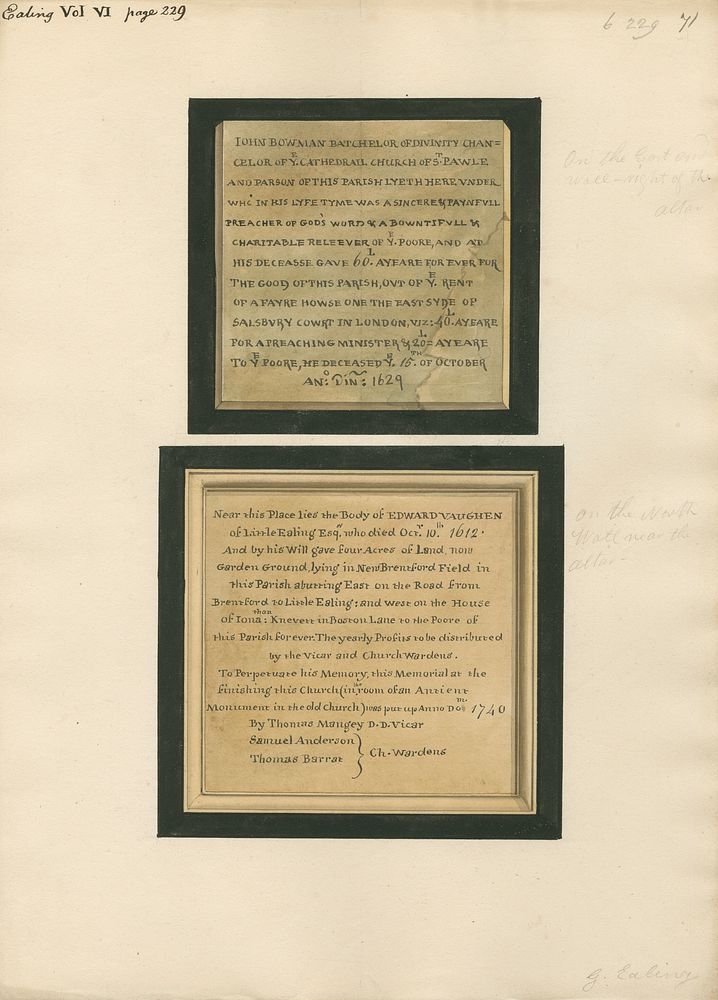 Ealing Vol VI page 229
6 229 71
IOHN BOWMAN BATCHELOR OF DIVINITY CHAN=
CELOR OF Y.E CATHEDRALL CHURCH OF S.T PAWLE
AND PARSON OF THIS PARISH LYETH HERE VNDER
WHO IN HIS LYFE TYME WAS A SINCERE & PAYNFVLL
PREACHER OF GOD'S WORD & A BOWNTIFVLL &
CHARITABLE RELEEVER OF Y.E POORE, AND AT
HIS DECEASSE GAVE 60.L A YEARE FOR EVER FOR
THE GOOD OF THIS PARISH, OVT OF Y.E RENT
OF A FAYRE HOWSE ONE THE EAST SYDE OF
SALSBVRY COWRT IN LONDON, VIZ: 40.L A YEARE
FOR A PREACHING MINISTER & 20=L A YEARE
TO YE POORE, HE DECEASED Y.E 15.TH OF OCTOBER
AN:O DIN: 1629
On the East end
Wall - right of the
altar
Near this Place lies the Body of EDWARD VAUGHEN
of Little Ealing Esq.r who died Oct.r 10.th 1612.
And by his Will gave four Acres of Land, now
Garden Ground, lying in New Brentford Field in
this Parish abutting East on the Road from
Brentford to Little Ealing; and West on the House
of Iona:than Knevett in Boston Lane to the Poore of
this Parish for ever. The yearly Profits to be distributed
by the Vicar and Church Wardens.
To Perpetuate his Memory, this Memorial at the
finishing this Church (in the room of an Antient
Monument in the old Church) was put up Anno Dom 1740
By Thomas Mangey D.D. Vicar
Samuel Anderson
Thomas Barrat
Ch. Wardens
on the North
Wall near the
altar -
G. Ealing